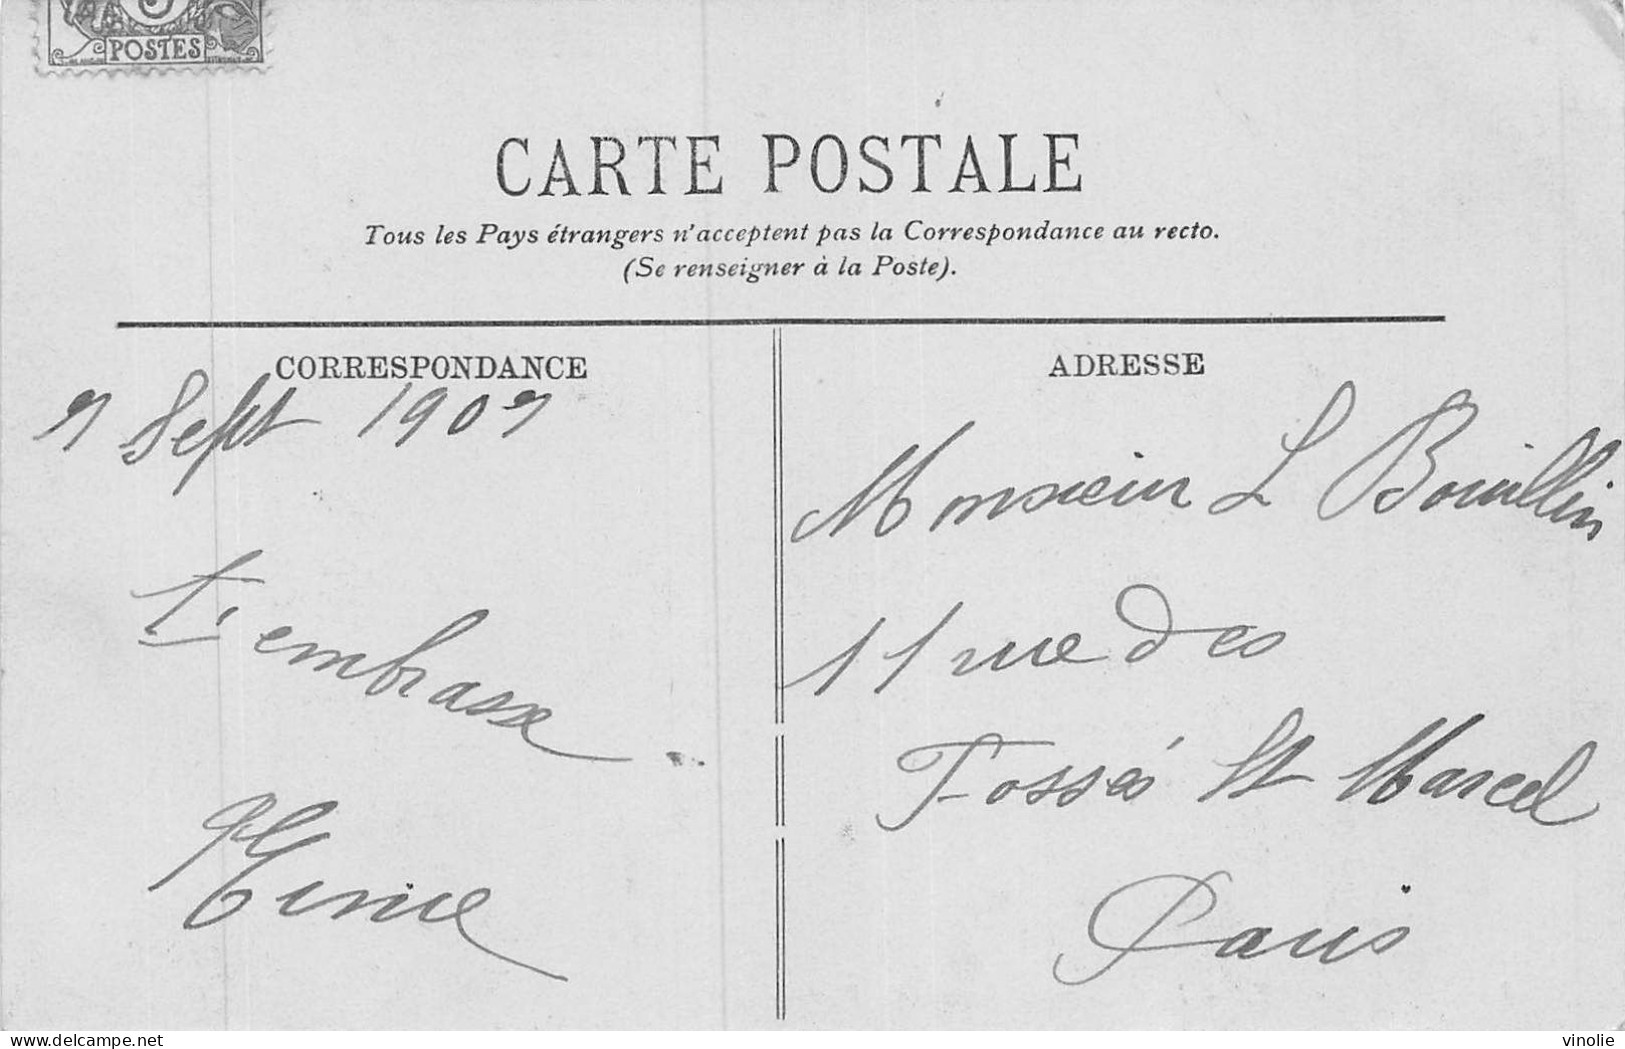 POSTES
CARTE POSTALE
Tous les Pays étrangers n'acceptent pas la Correspondance au recto.
(Se renseigner à la Poste).
CORRESPONDANCE
7 Sept 1907
t'embrasse
ADRESSE
Monsieur L Bouillin
11 rue des
Fossés St Marcel
Paris
delcampe.net
vinolie